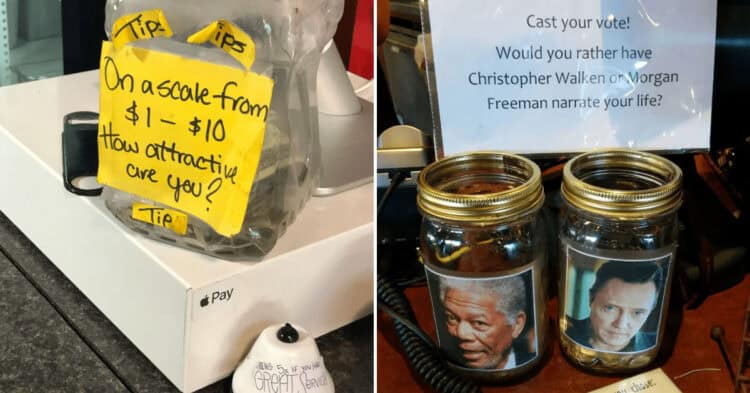 Tips
Tips
On a scale from
$1 - $10
How attractive
are you?
Tip
Pay
5x if you had
GREAT Service
Cast your vote!
Would you rather have
Christopher Walken or Morgan
Freeman narrate your life?